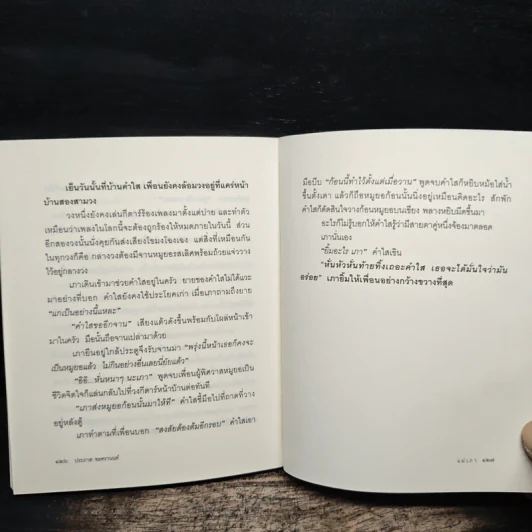 เย็นวันนั้นที่บ้านคำใส เพื่อนยังคงล้อมวงอยู่ที่แคร่หน้า
บ้านสองสามวง
วงหนึ่งยังคงเล่นกีตาร์ร้องเพลงมาตั้งแต่บ่าย และทำตัว
เหมือนว่าเพลงในโลกนี้จะต้องถูกร้องให้หมดภายในวันนี้ ส่วน
อีกสองวงนั่นนั่งคุยกันส่งเสียงโขมงโฉงเฉง แต่สิ่งที่เหมือนกัน
ในทุกวงก็คือ กลางวงต้องมีจานหมูยอรสเลิศพร้อมถ้วยแจ่ววาง
ไว้อยู่กลางวง
เภาเดินเข้ามาช่วยคำใสอยู่ในครัว ยายของคำใสไม่ได้แวะ
มาอย่างที่บอก คำใสยังคงใช้ประโยคเก่า เมื่อเภาถามถึงยาย
“แกเป็นอย่างนี้แหละ”
“คำใสขออีกจาน” เสียงแต้วดังขึ้นพร้อมกับโผล่หน้าเข้า
มาในครัว มือนั้นถือจานเปล่ามาด้วย
เภายืนอยู่ใกล้ประตูจึงรับจานมา “พรุ่งนี้หน้าเธอก็คงจะ
เป็นหมูยอแล้ว ไม่กินอย่างอื่นเลยนี่ยัยแต้ว”
“อิอิ...หั่นหนาๆ นะเภา” พูดจบเพื่อนผู้พิศวาสหมูยอเป็น
ชีวิตจิตใจก็แล่นกลับไปที่วงกีตาร์หน้าบ้านต่อทันที
“เภาส่งหมูยอก้อนนั้นมาให้ที” คำใสชี้มือไปที่ถาดที่วาง
อยู่หลังตู้
เภาทำตามที่เพื่อนบอก “สงสัยต้องต้มอีกรอบ” คำใสเอา
๑๒๖ ประภาส ชลศรานนท์
มือบีบ “ก้อนนี้ทำไว้ตั้งแต่เมื่อวาน” พูดจบคำใสก็หยิบหม้อใส่น้ำ
ขึ้นตั้งเตา แล้วก็ถือหมูยอก้อนนั้นนิ่งอยู่เหมือนคิดอะไร สักพัก
คำใสก็ตัดสินใจวางก้อนหมูยอบนเขียง พลางหยิบมีดขึ้นมา
อะไรก็ไม่รู้บอกให้คำใสรู้ว่ามีสายตาคู่หนึ่งจ้องมาตลอด
เภานั่นเอง
“ยิ้มอะไร เภา” คำใสเขิน
“หั่นหัวหั่นท้ายทิ้งเถอะคำใส เธอจะได้มั่นใจว่ามัน
อร่อย” เภายิ้มให้เพื่อนอย่างกว้างขวางที่สุด
๑๒๗